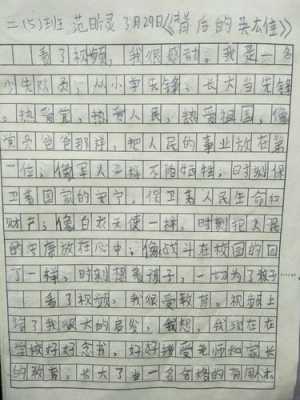 二(5)班 范昕灵 3月29日《背后的英雄》
看了视频，我很感动。我是一名
少先队员，从小学先锋，长大当先锋
，热爱党，热爱人民，热爱祖国，像
党员爸爸那样，把人民的事业放在第
一位，像军人一样不怕牺牲，时刻保
卫着国家的安宁，保卫着人民生命和
财产；像白衣天使一样，时刻把人民
的安康放在心中；像战斗在校园的园
丁一样，时刻想着孩子，一切为了孩子
看了视频，我很受教育。视频上
给了我很大的启发，我想，我现在在
学校好好念书，好好接受老师和家长
的教育，长大了当一名合格的有用人